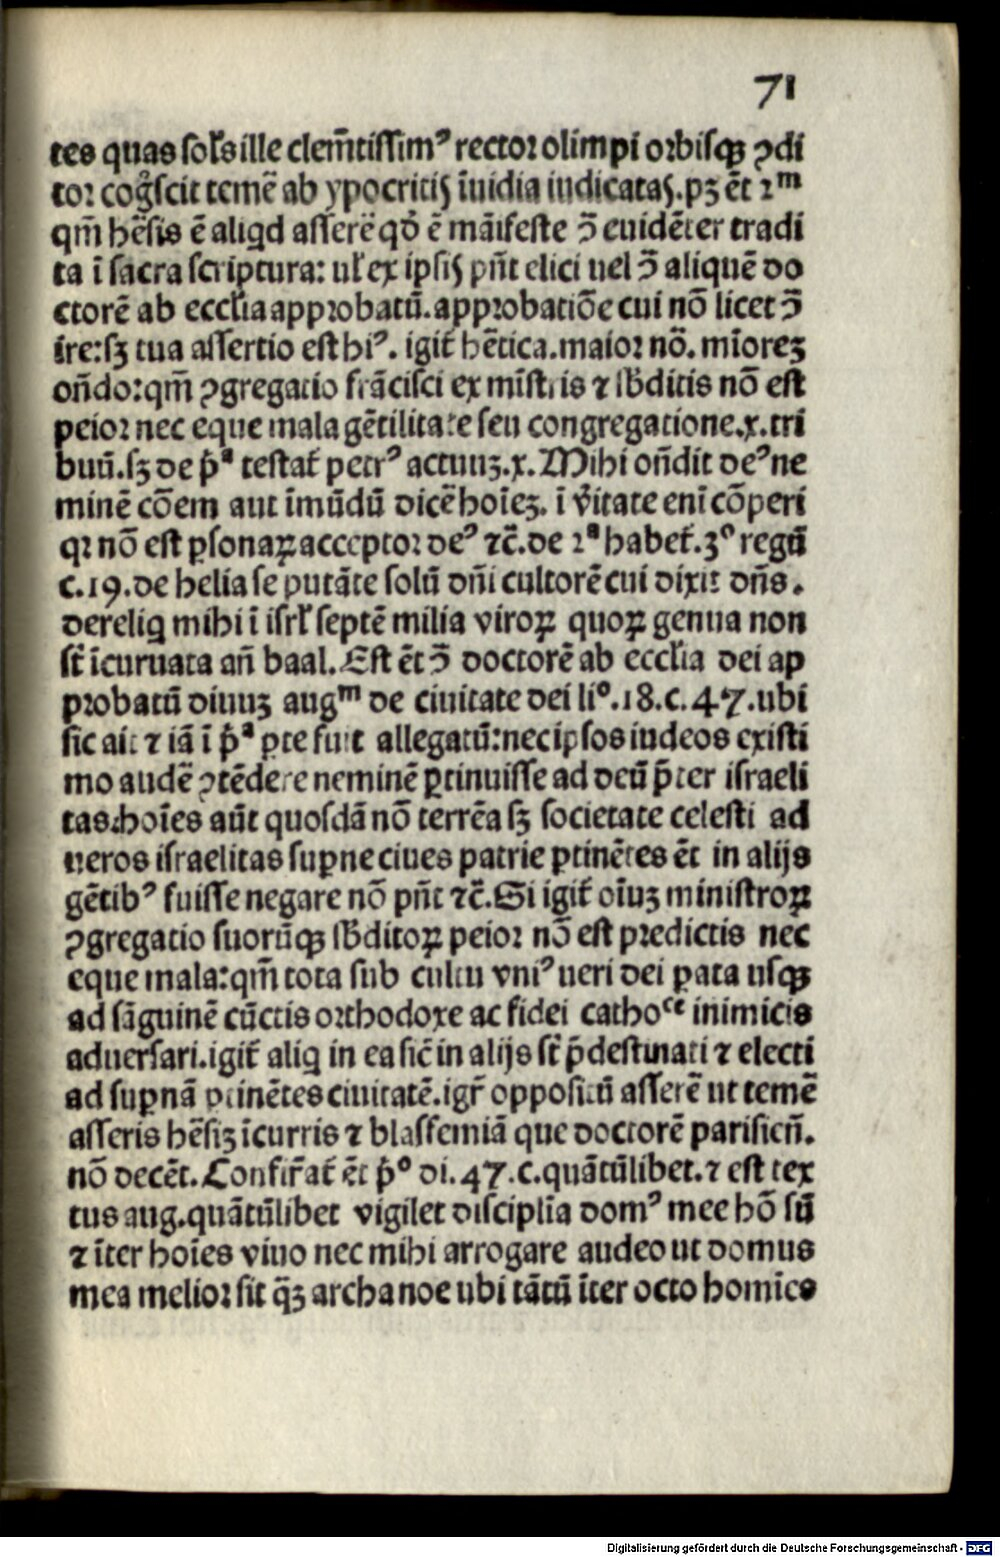 71
tes quas sol᷒s ille clem̄tissimꝰ rector olimpi orbisqꝫ ꝯdi
tor cog̊scit temē ab ypocritis̨ īuidia iudicatas̨. pꝫ ēt 2ᵐ
qm̄ hēsis ē aliqd asserē qđ ē māifeste ↄ̄ euidēter tradi
ta ī sacra scriptura: ul̄ ex ipsis̨ pn̄t elici uel ↄ̄ aliquē do
ctorē ab eccl̄ia approbatū. approbatiōe cui nō licet ↄ̄
ire: sꝫ tua assertio est hiꝰ. igit̄ hētica. maior nō. mīoreꝫ
on̄do: qm̄ ꝯgregatio frācisci ex mīstris ⁊ sb̄ditis nō est
peior nec eque mala gētilitate seu congregatione .x. tri
buū. sꝫ de p̄ᵃ testat̄ petrꝰ actuuꝫ .x. Mihi on̄dit deꝰ ne
minē cōem aut īmūdū dicē hoīeꝫ. ī v̄itate enī cōperi
qꝛ nō est ꝑsonaꝝ acceptor deꝰ ⁊c̄. de 2ᵃ habet̄. 3ᵒ regū
c. 19. de helia se putāte solū dn̄i cultorē cui dixit dn̄s.
dereliq mihi ī isrl̄ septē milia viroꝝ quoꝝ genua non
st̄ īcuruata an̄ baal. Est ēt ↄ̄ doctorē ab eccl̄ia dei ap
probatū diuuꝫ augᵐ de ciuitate dei liᵒ. 18. c. 47. ubi
sic ait ⁊ iā ī p̄ᵃ ꝑte fuit allegatū: nec ipsos iudeos existi
mo audē ꝯtēdere neminē ꝑtinuisse ad deū p̄ter israeli
tas: hoīes aūt quosdā nō terrēa sꝫ societate celesti ad
ueros israelitas suꝑne ciues patrie ꝑtinētes ēt in alijs
gētibꝰ fuisse negare nō pn̄t ⁊c̄. Si igit̄ oīuꝫ ministroꝝ
ꝯgregatio suorūqꝫ sb̄ditoꝝ peior nō est predictis nec
eque mala: qm̄ tota sub cultu vniꝰ ueri dei ꝑata usqꝫ
ad sāguinē cūctis orthodoxe ac fidei cathoᶜᵉ inimicis
aduersari. igit̄ aliq in ea sic̄ in alijs st̄ p̄destinati ⁊ electi
ad suꝑnā ꝑtinētes ciuitatē. igr̄ oppositū asserē ut temē
asseris hēsiꝫ īcurris ⁊ blasfemiā que doctorē parisien̄.
nō decēt. Confir̄at̄ ēt p̄ᵒ di. 47. c. quātūlibet. ⁊ est tex
tus aug. quātūlibet vigilet disciplīa domꝰ mee hō sū
⁊ īter hoīes viuo nec mihi arrogare audeo ut domus
mea melior sit q̄ꝫ archa noe ubi tātū īter octo homīes
Digitalisierung gefördert durch die Deutsche Forschungsgemeinschaft - DFG